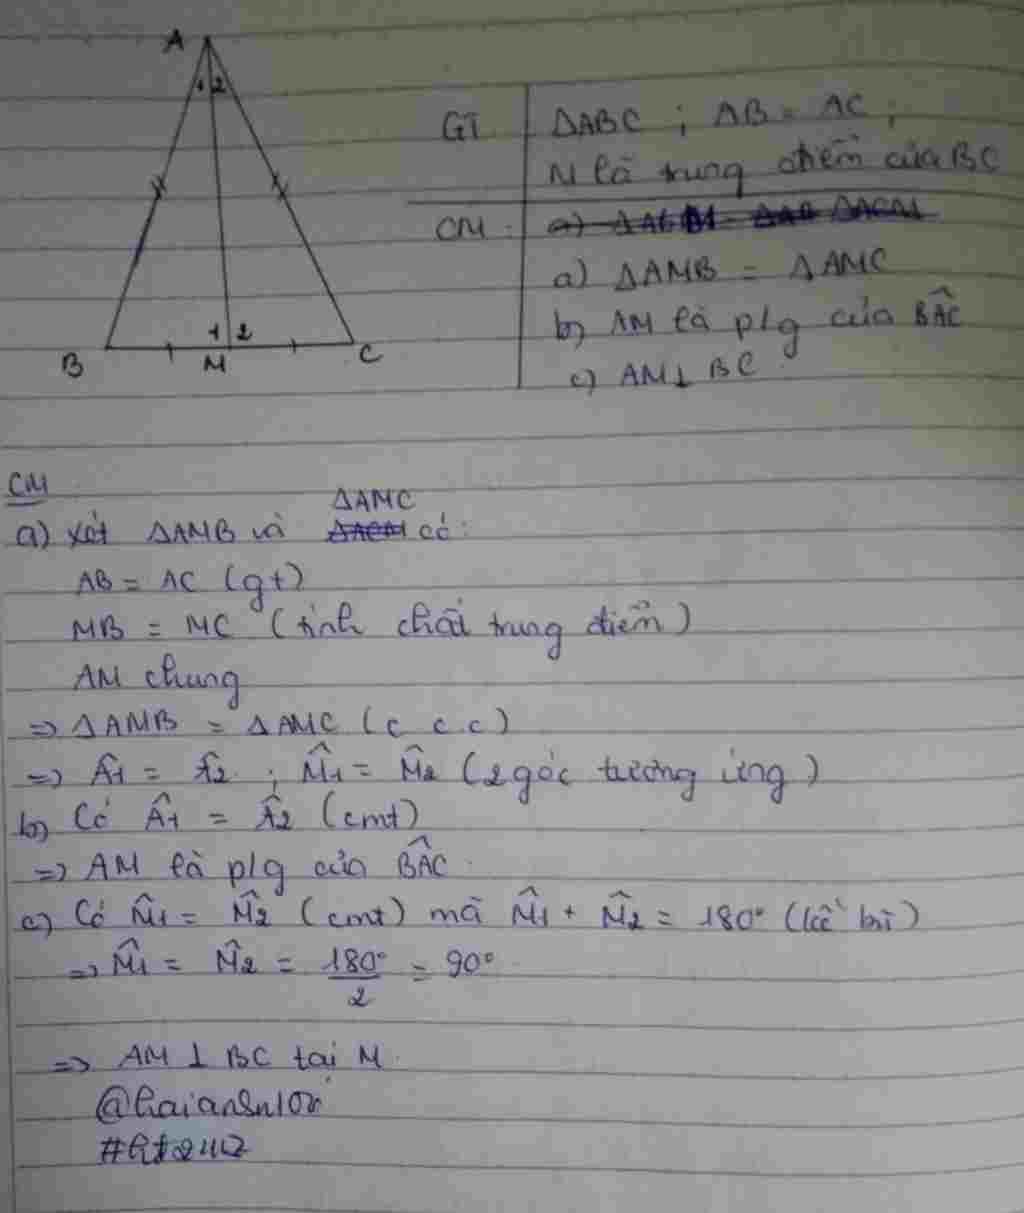 A
1 2
B
1 2
M
C
GT
ΔABC ; AB = AC ;
M là trung điểm của BC
CM :
a) ΔAMB = ΔAMC
b) AM là p/g của BÂC
c) AM ⊥ BC
CM
ΔAMC
a) xét ΔAMB và có:
AB = AC (gt)
MB = MC (tính chất trung điểm)
AM chung
=> ΔAMB = ΔAMC (c c.c)
=> Â1 = Â2 ; M̂1 = M̂2 (2 góc tương ứng)
b) Có Â1 = Â2 (cmt)
=> AM là p/g của BÂC
c) Có M̂1 = M̂2 (cmt) mà M̂1 + M̂2 = 180° (kề bù)
=> M̂1 = M̂2 = 180°/2 = 90°
=> AM ⊥ BC tại M.